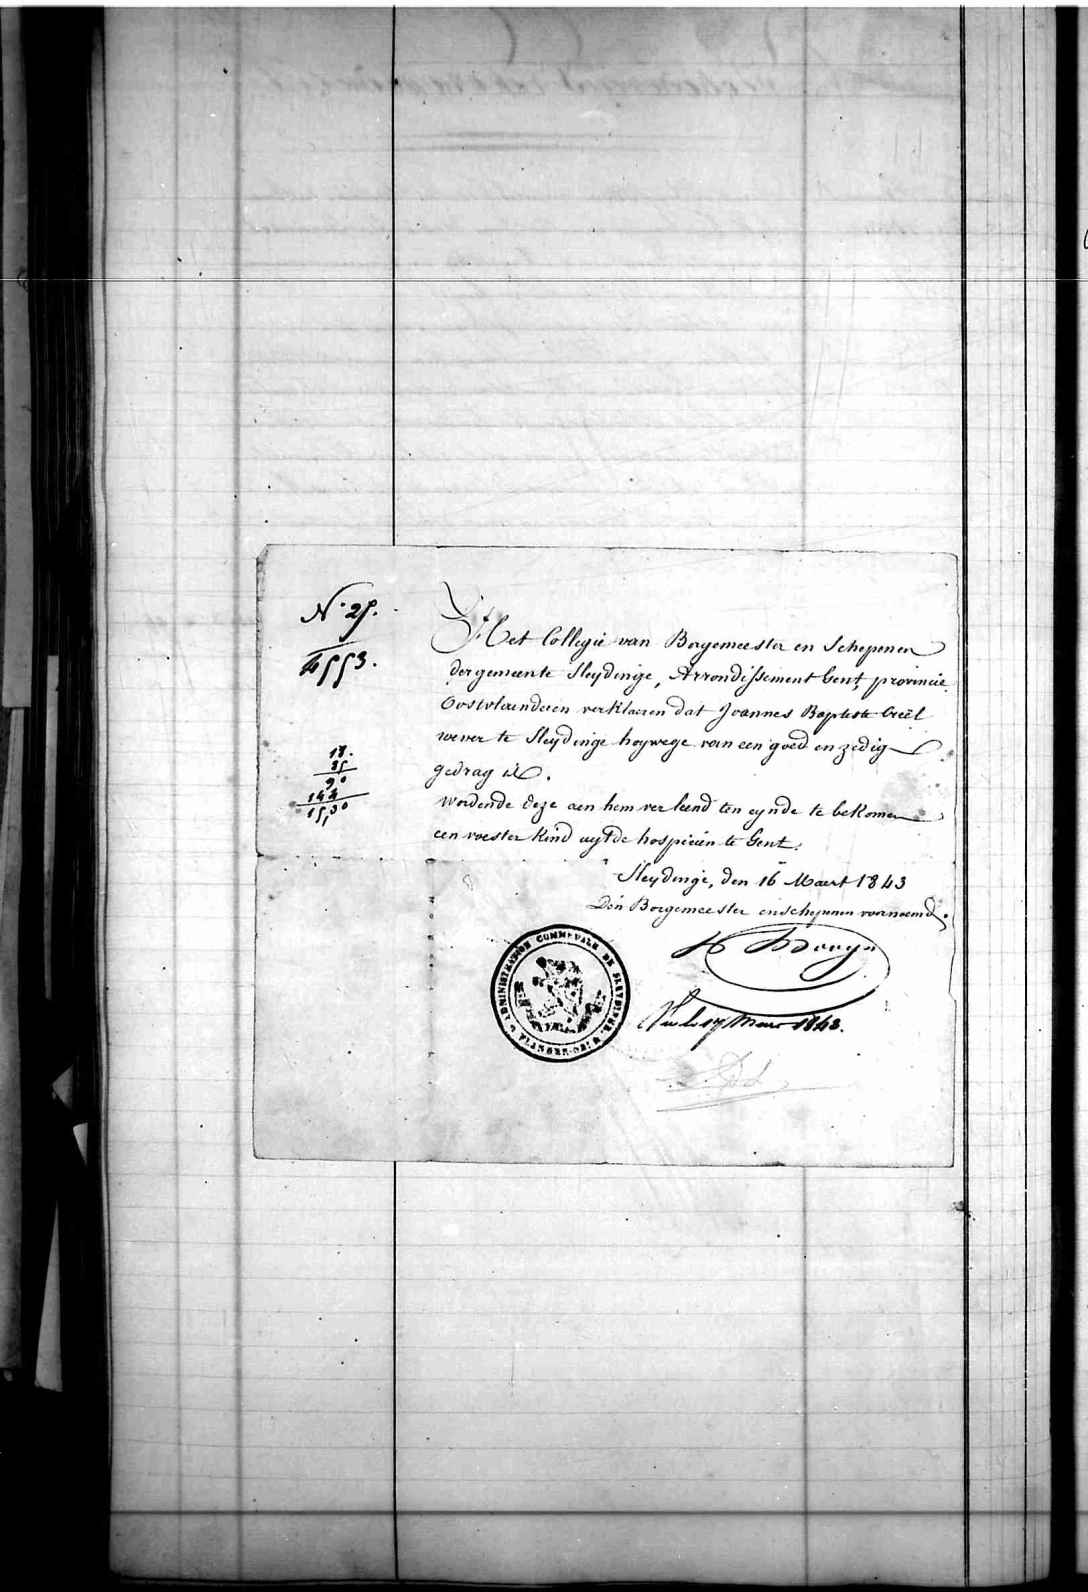 N° 25.
4553.
18.
35
90
144
15,30
Het Collegie van Borgemeester en Schepenen
der gemeente Sleydinge, Arrondissement Gent, provincie
Oostvlaenderen verklaeren dat Joannes Baptiste Criël
wever te Sleydinge hoywege van een goed en zedig
gedrag is.
wordende deze aen hem verleend ten eynde te bekomen
een voester kind uyt de hospicien te Gent.
Sleydinge, den 16 Maert 1843
Den Borgemeester en schepenen voornoemd.
Vu le 17 Mars 1843.
ADMINISTRATION COMMUNALE DE SLEYDINGE
FLANDER-OR: